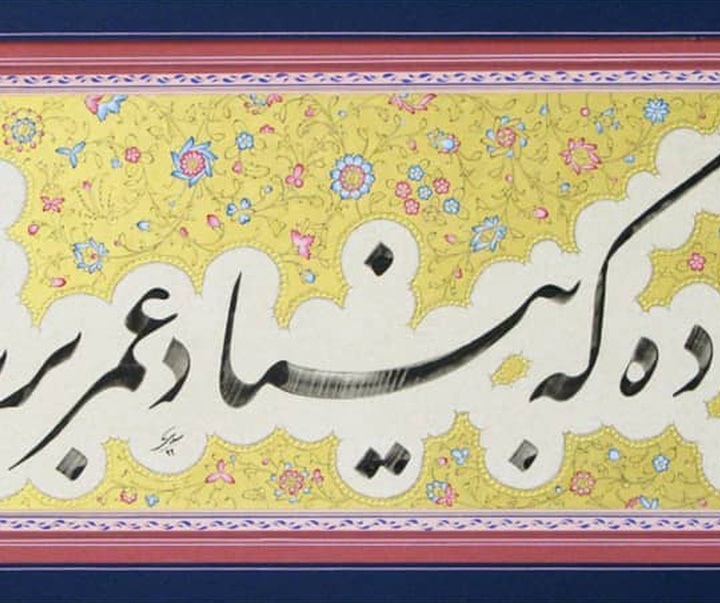 ده که بنیاد عمر بر